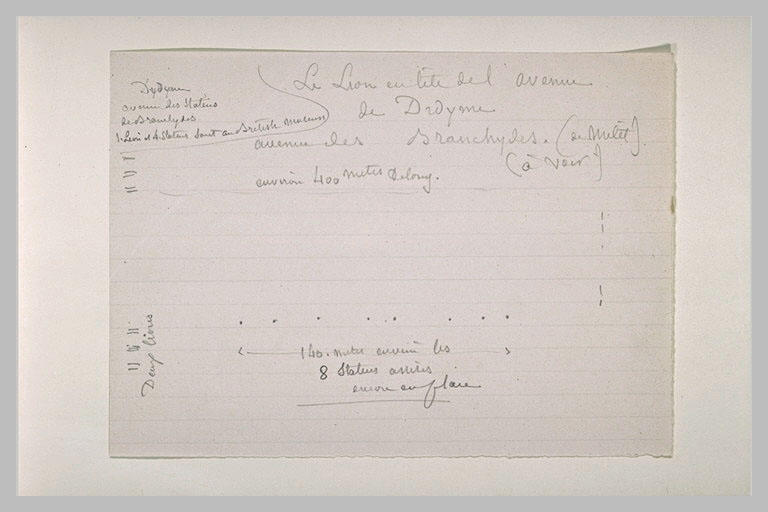 Dydyme
avenue des Statues
de Branchydes
1. Lion et 4 Statues sont au British Museum
Le Lion en tête de l'avenue
de Dydyme
avenue des Branchydes. (de Milet)
(à voir)
environ 400 metres de long.
Deux lions
140. metre environ les
8 Statues assises
encore en place